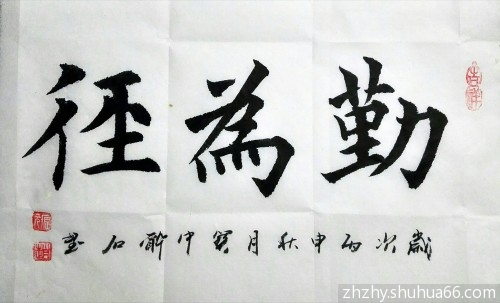 勤為徑
歲次丙申秋月寶中石書
吉祥
zhzhy.shuhua66.com